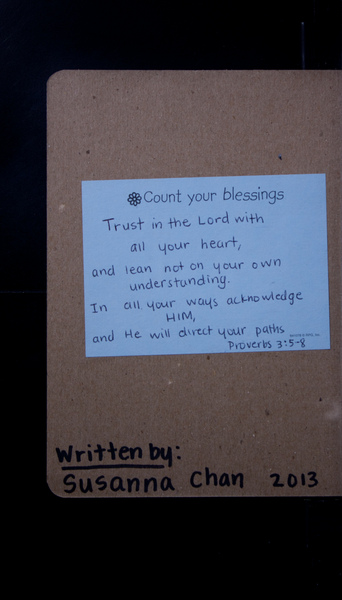 Count your blessings
Trust in the Lord with
all your heart,
and lean not on your own
understunding.
In all your ways acknowledge
HIM,
and He will direct your paths
Proverbs 3:5-8
Written by:
Susanna Chan 2013